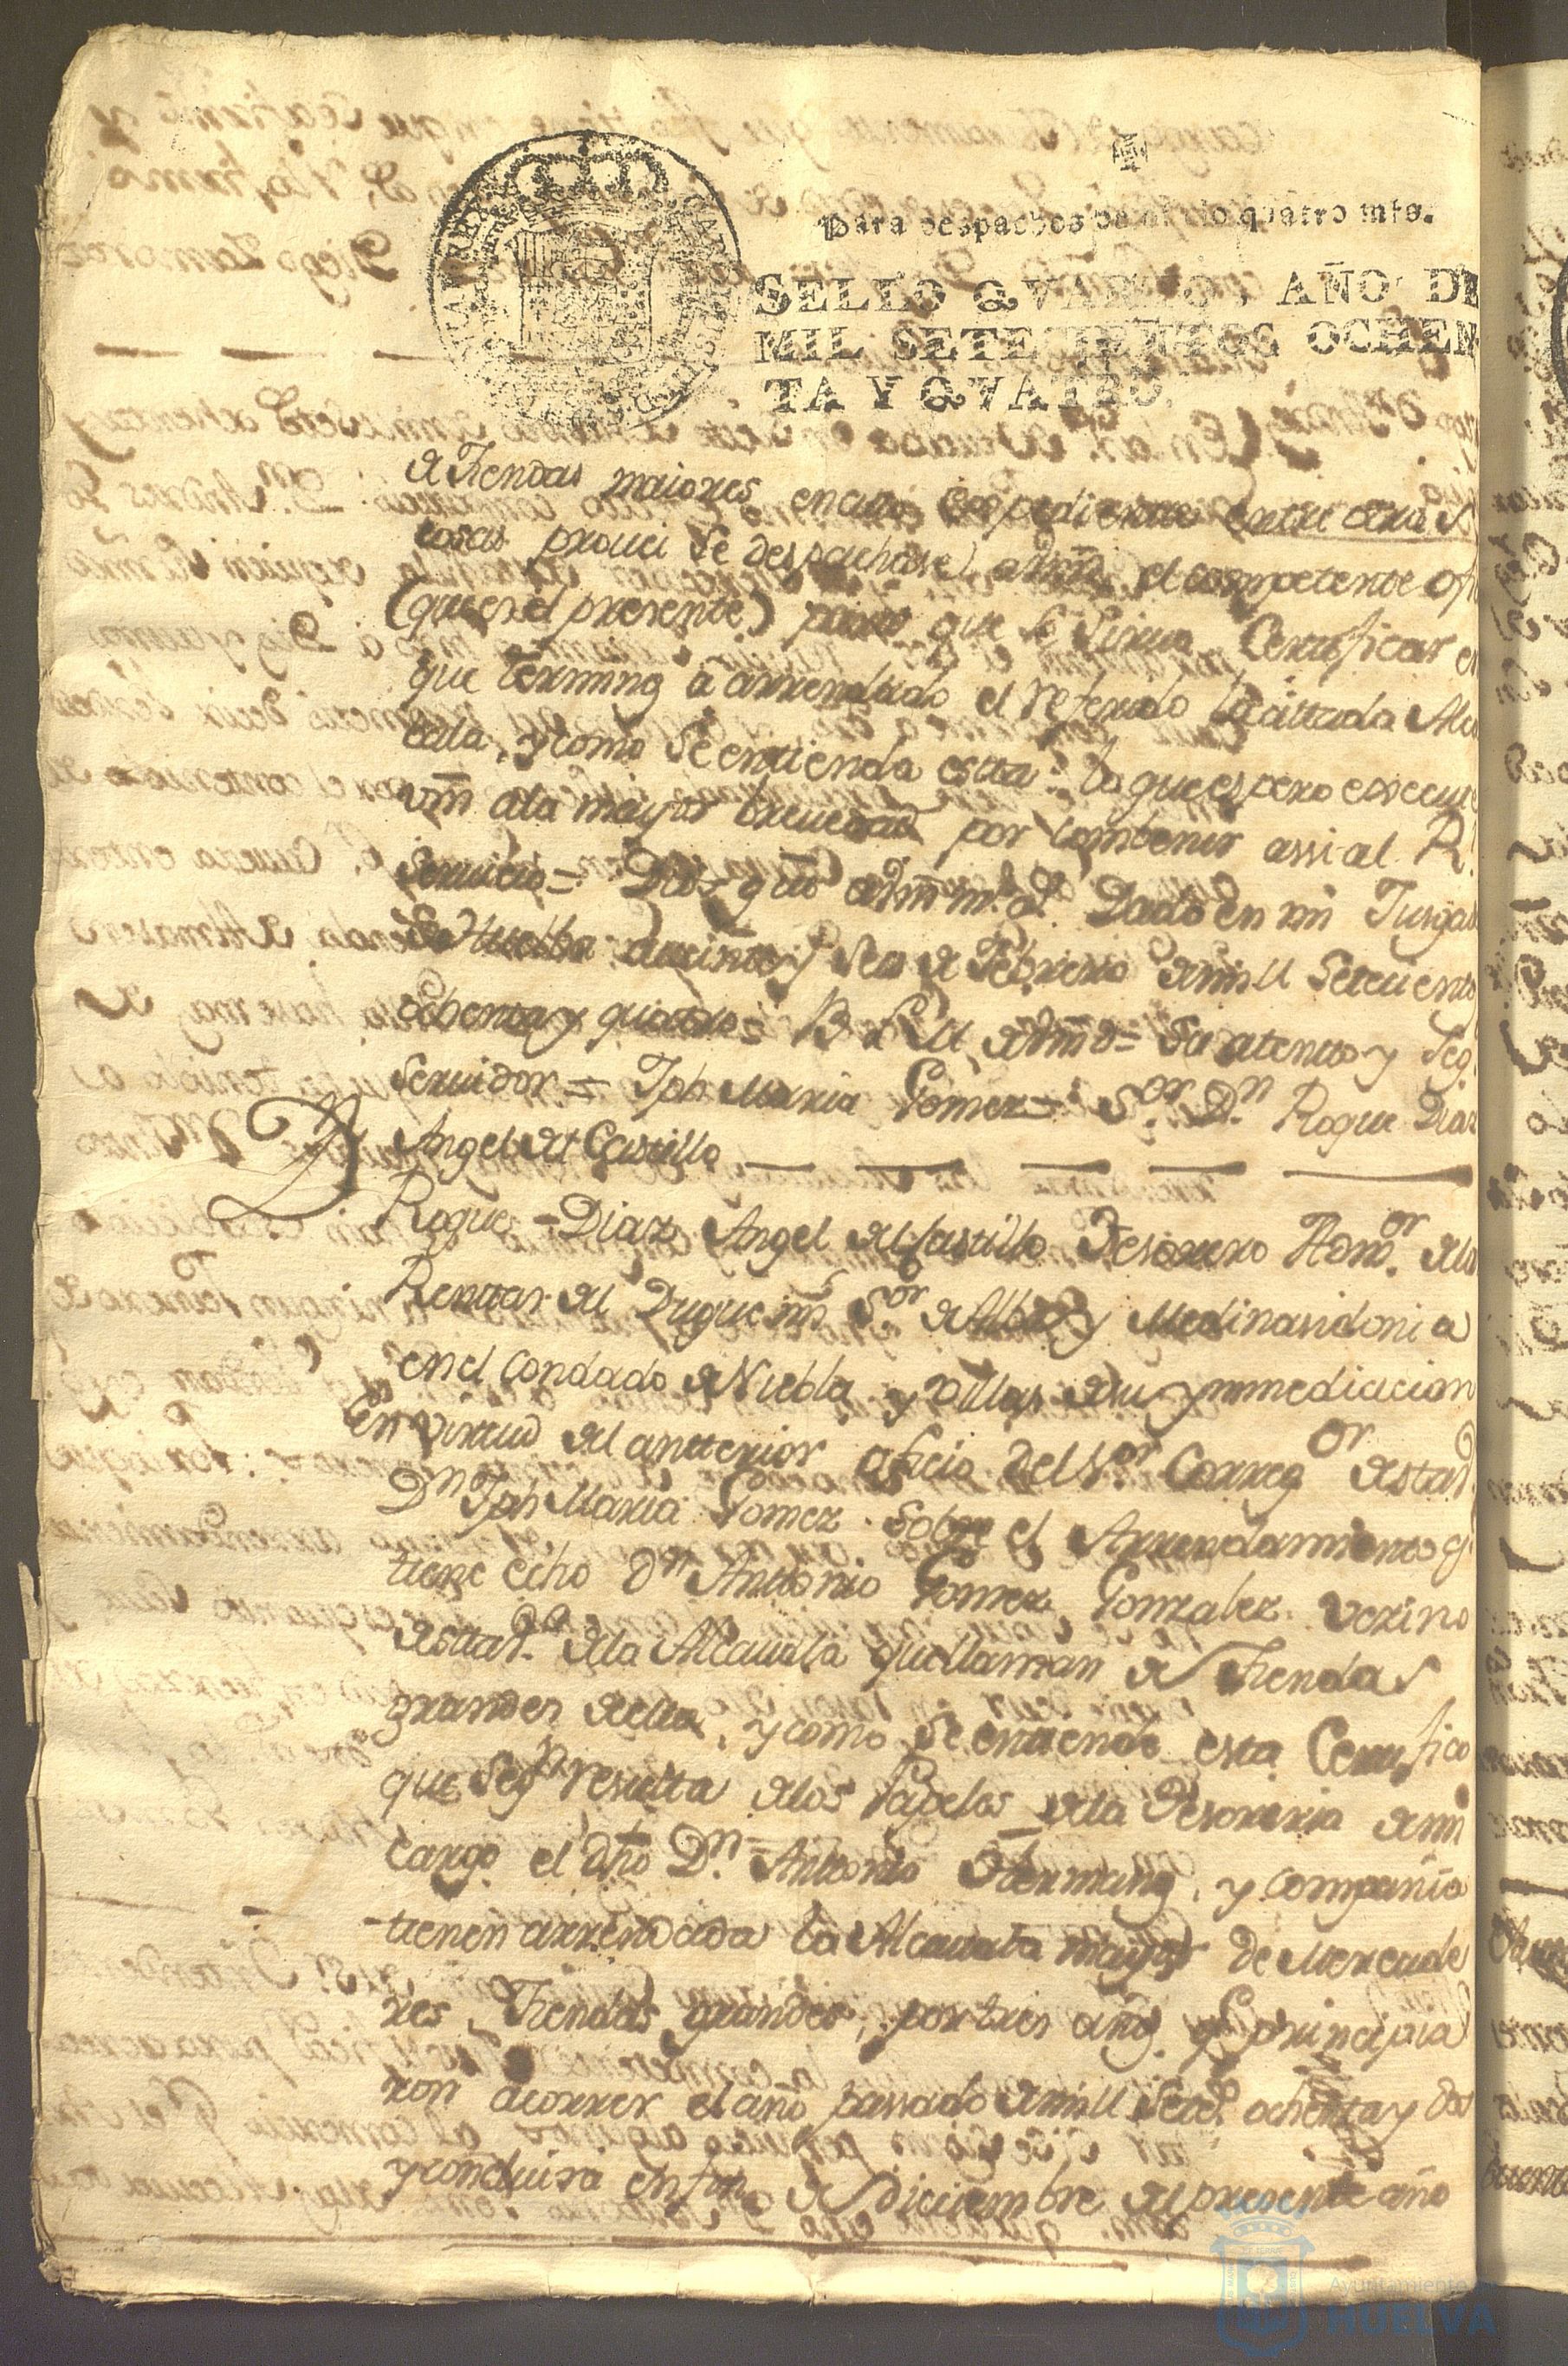 Para despachos de oficio quatro mrs.
SELLO QVARTO, AÑO DE
MIL SETECIENTOS OCHEN
TA Y QVATRO.
de Tiendas maiores, en cuio expediente entre otras
cosas proveí se despachase a Vmd. el competente ofi
(que es el presente) para que se sirva Certificar en
que termino a arrendado el referido la citada Alca
vala, y como se entienda estta: lo que espero execute
Vm a la mayor brevedad por combenir assi al Rl.
Servicio = Dios gue a Vm ms. as. Dado en mi Jusgad
de Huelba a veinte y seis de Febrero de mill setecientos
ochenta y quatro = B L M de Vmd = Su atento y Seg.
Servidor = Jph Maria Gomez = Sor. Dn. Roque Diaz
Angel del Castillo
Roque Diaz Angel del Castillo Tesorero Admor. de las
Renttas del Duque mi Sor. de Alba y Medinasidonia
en el Condado de Niebla, y Villas de su ynmediacion
En virtud del antterior oficio del Sor. Correg.or de sta
Dn Jph Maria Gomez sobre el Arrendamiento q.
tiene echo Dn Anttonio Gomez Gonzalez vezino
de stta de la Alcavala que llaman de Tiendas
grandes de ella, y como se entiende esta Certifico
que segn resulta de los Papeles de la Tesoreria de mi
cargo el dho Dn. Antonio Germano, y compañia
tienen arrendada la Alcavala mayor de Mercade
res, Tiendas grandes, por tres años q principia
ron a correr el año passado de mill setecs. ochenta y dos
y concluira en fin de Diciembre del presente año
Ayuntamiento
HUELVA